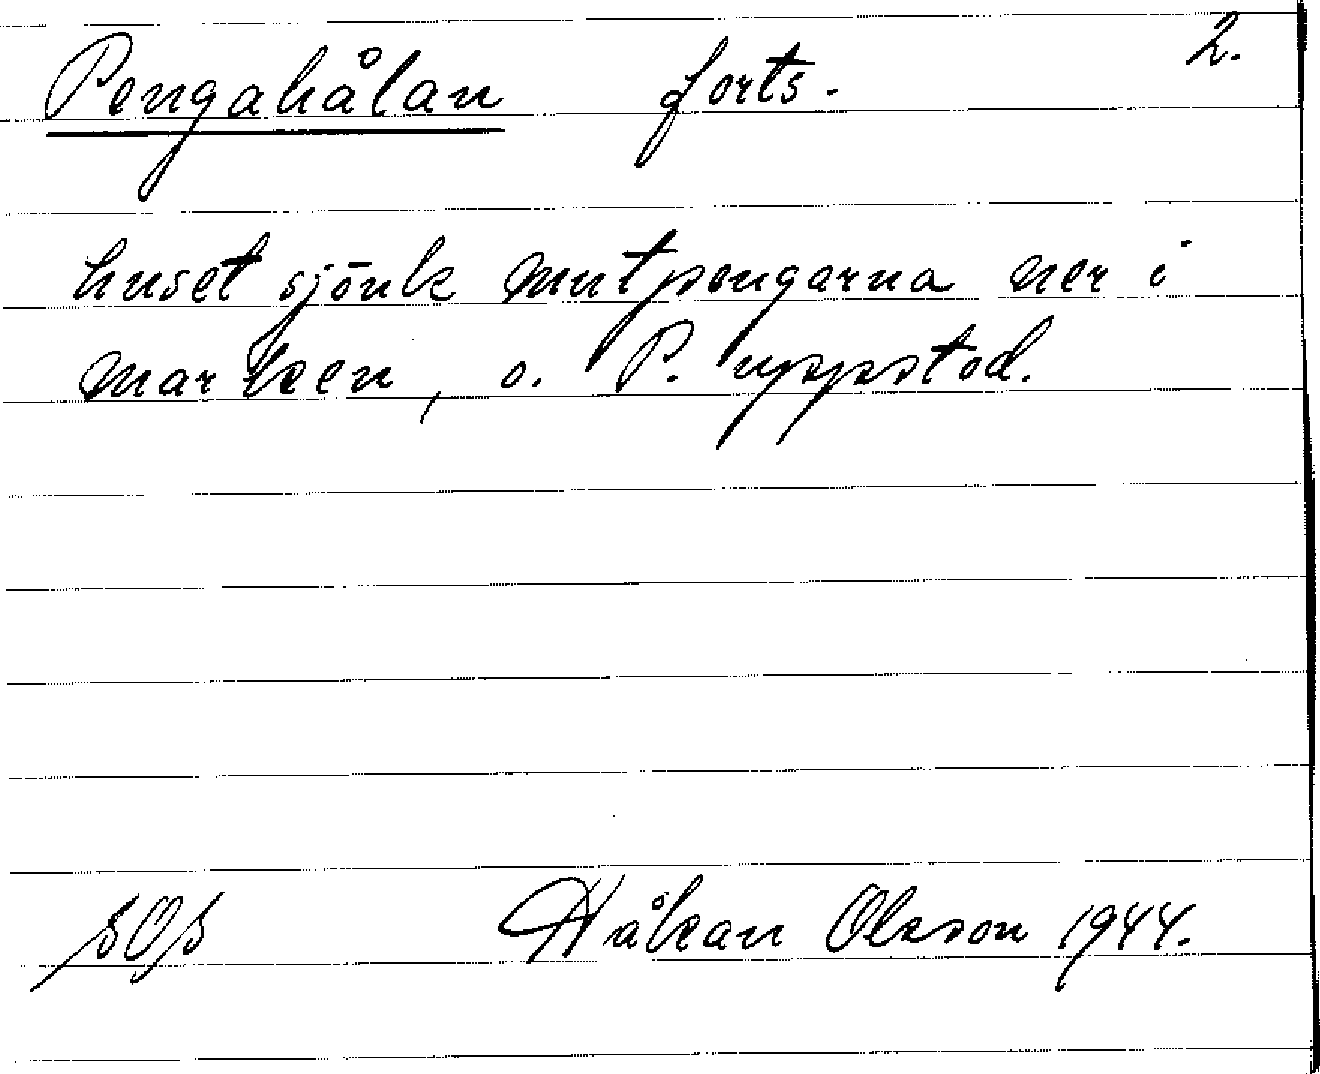 2.
Pengahålan forts.
huset sjönk mutpengarna ner i
marken, o. P. uppstod.
Håkan Olsson 1944.